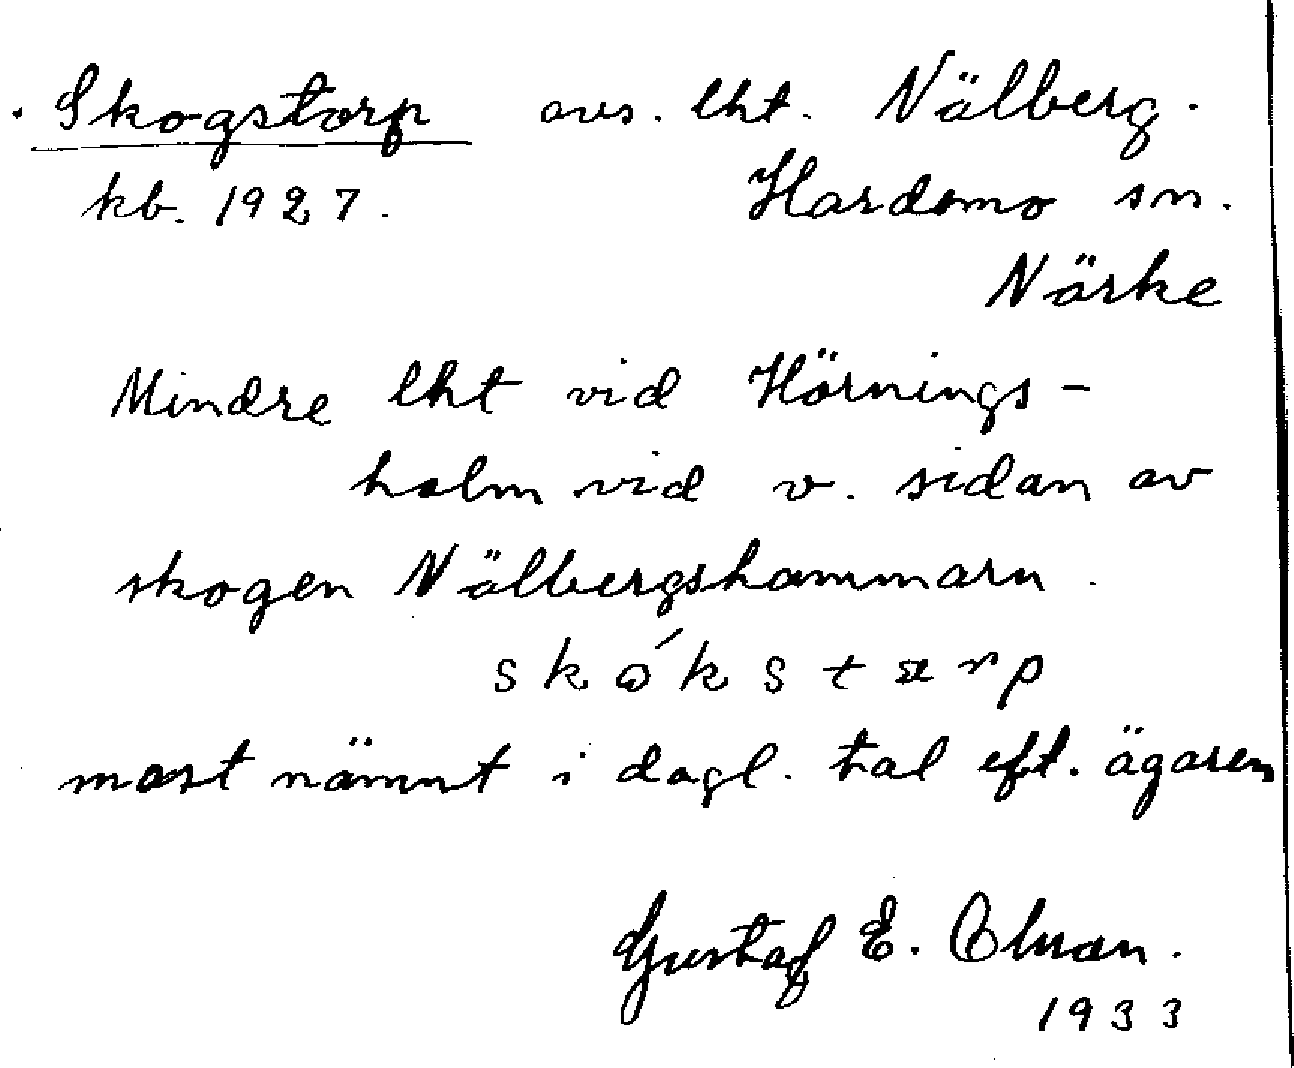 Skogstorp avs. lht. Nälberg.
kb. 1927. Hardemo sn.
Närke
Mindre lht vid Hörnings-
holm vid v. sidan av
skogen Nälbergshammarn.
mast nämnt i dagl. tal eft. ägaren
Gustaf E. Olsson.
1933